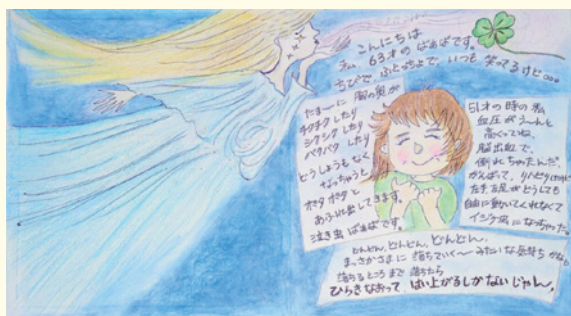 こんにちは
私、63才のばぁばです。
ちびで、ふとっちょで、いつも笑ってるけど…
たまーに 胸の奥が
チクチクしたり
シクシクしたり
バクバクしたり
どうしようもなく
なっちゃうと
ポタポタと
あふれ出してきます。
泣き虫ばぁばです。
51才の時の私
血圧がうーんと
高くってね、
脳出血で、
倒れちゃったんだ。
がんばって、リハビリしたけど
左手左足がどうしても
自由に動いてくれなくて
イジケ虫になっちゃった。
どんどん、どんどん、どんどん、
まっさかさまに 落ちていく〜みたいな気持ちかな。
落ちるところまで 落ちたら
ひらきなおって はい上がるしかないじゃん。